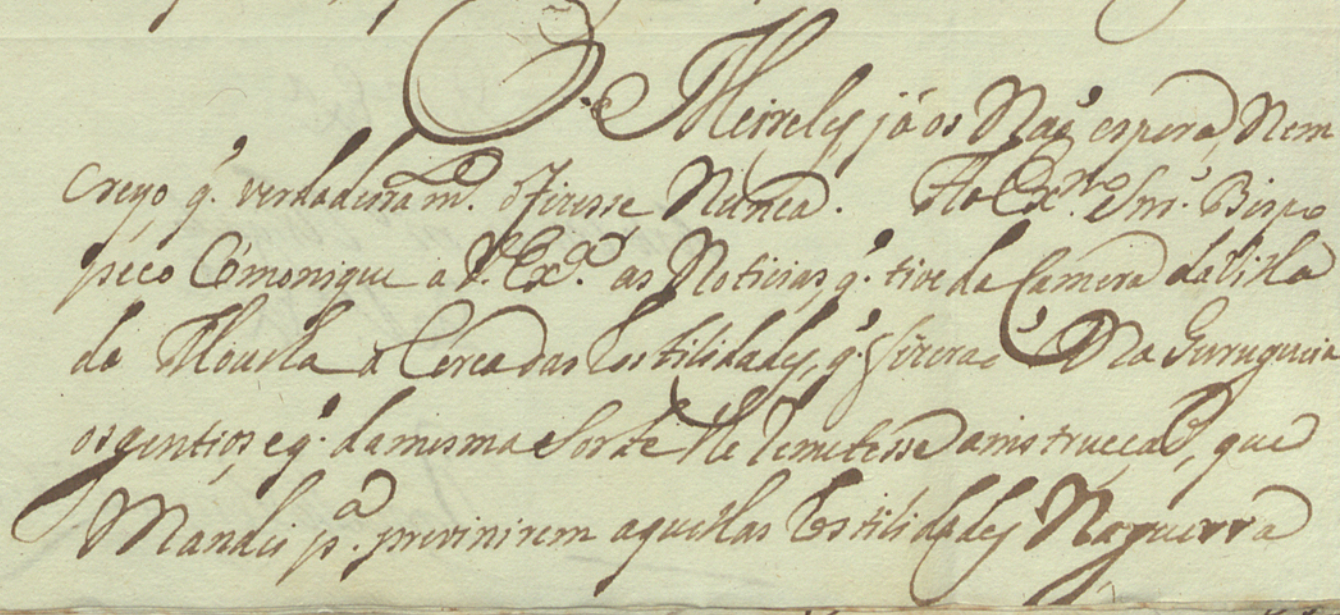 O. Meireles, já os Naõ espera, Nem
creyo q. verdadeiram.e o fizesse Nunca. Ao Ex.mo Snr. Bispo
peço Cõmonique a V. Ex.a as Noticias, q. tive da Camera da Villa
de Moura a Cerca das hostilidades, q. fizeraõ Na
os gentios, e q. da mesma Sorte lhe remetesse a instrucçaõ, que
Mandei p.a previnirem aquellas hostilidades Na guerra